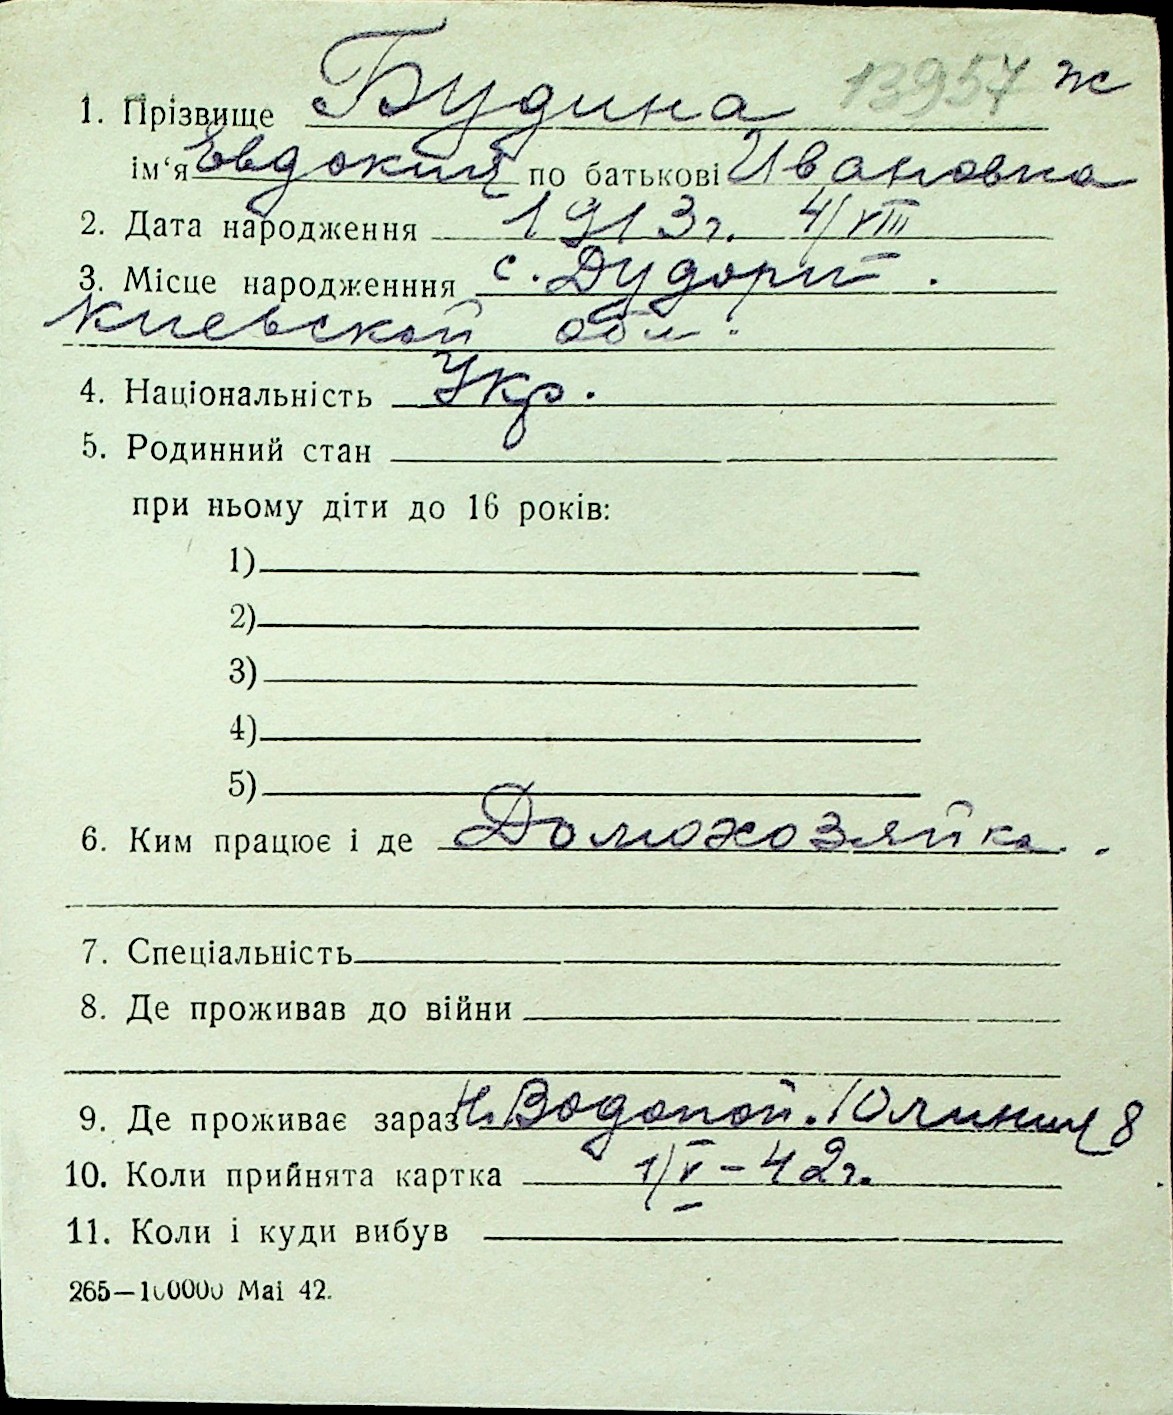 13957 ж
1. Прізвище Будина
ім‘я Евдокия по батькові Ивановна
2. Дата народження 1913г. 4/VIII
3. Місце народженння с. Дудори
Киевской обл.
4. Національність Укр.
5. Родинний стан
при ньому діти до 16 років:
1)
2)
3)
4)
5)
6. Ким працює і де Домохозяйка.
7. Спеціальність
8. Де проживав до війни
9. Де проживає зараз Н. Водопой. 8
10. Коли прийнята картка 1/V–42г.
11. Коли і куди вибув
265—100000 Mai 42.